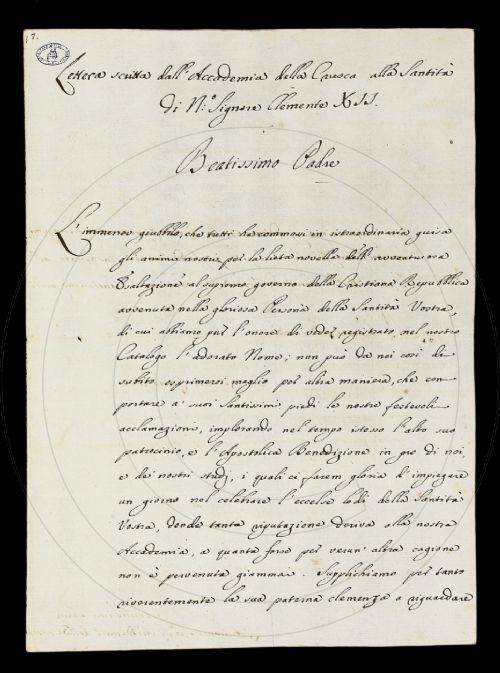 7.
Lettera scritta dall'Accademia della Crusca alla Santità
di N:o Signore Clemente XII.
Beatissimo Padre
L'immenso giubbilo, che tutti ha commossi in istraordinaria guisa
gli animi nostri per la lieta novella dell'avventurosa
Esaltazione al supremo governo della Cristiana Repubblica
avvenuta nella gloriosa Persona della Santità Vostra,
di cui abbiamo pur l'onore di veder registrato nel nostro
Catalogo l'adorato Nome; non può da noi così di
subito esprimersi meglio per altra maniera, che con
portare a' suoi Santissimi piedi le nostre festevoli
acclamazioni, implorando nel tempo istesso l'alto suo
patrocinio, e l'Apostolica Benedizione in pro di noi,
e dei nostri studj, i quali ci farem gloria d'impiegare
un giorno nel celebrare l'eccelse lodi della Santità
Vostra, donde tanta riputazione deriva alla nostra
Accademia, a quanta forse per verun'altra cagione
non è pervenuta giammai. Supplichiamo per tanto
riverentemente la sua paterna clemenza a riguardare